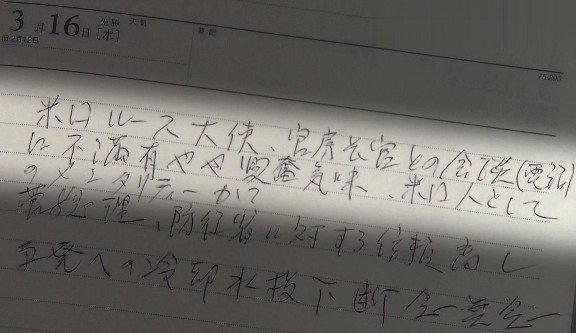 3月16日[水]
先勝 天気
旧2月12日
筆記
75-290
米国ルース大使、官房長官との会談(電話)
に不満有やや興奮気味、米国人として
のメンタリティーか?
菅総理、防衛省に対する信頼高し
原発への冷却水投下断